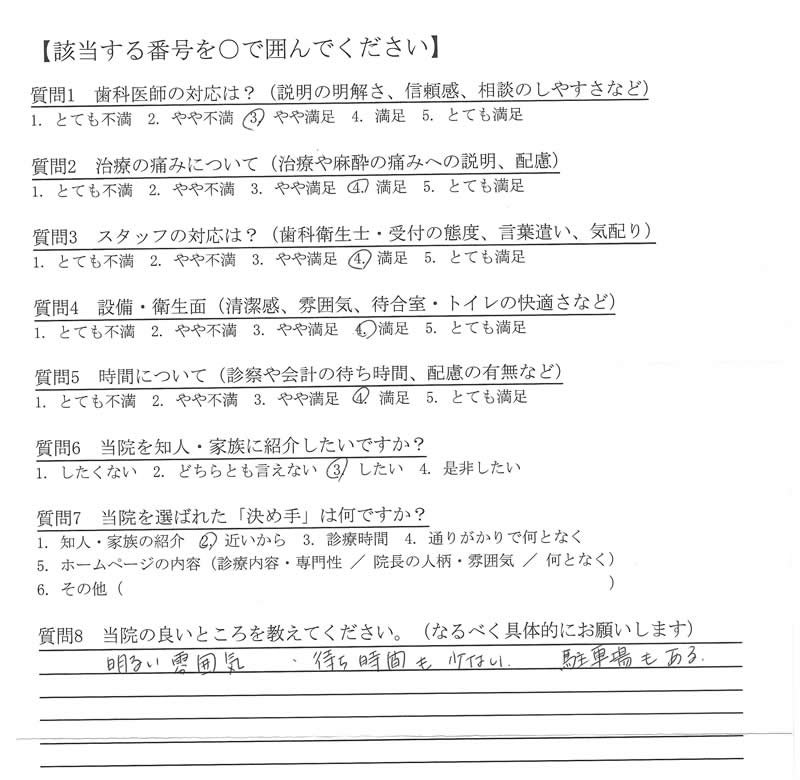 【該当する番号を〇で囲んでください】
質問1　歯科医師の対応は？（説明の明解さ、信頼感、相談のしやすさなど）
1. とても不満　2. やや不満　3. やや満足　4. 満足　5. とても満足
質問2　治療の痛みについて（治療や麻酔の痛みへの説明、配慮）
1. とても不満　2. やや不満　3. やや満足　4. 満足　5. とても満足
質問3　スタッフの対応は？（歯科衛生士・受付の態度、言葉遣い、気配り）
1. とても不満　2. やや不満　3. やや満足　4. 満足　5. とても満足
質問4　設備・衛生面（清潔感、雰囲気、待合室・トイレの快適さなど）
1. とても不満　2. やや不満　3. やや満足　4. 満足　5. とても満足
質問5　時間について（診察や会計の待ち時間、配慮の有無など）
1. とても不満　2. やや不満　3. やや満足　4. 満足　5. とても満足
質問6　当院を知人・家族に紹介したいですか？
1. したくない　2. どちらとも言えない　3. したい　4. 是非したい
質問7　当院を選ばれた「決め手」は何ですか？
1. 知人・家族の紹介　2. 近いから　3. 診療時間　4. 通りがかりで何となく
5. ホームページの内容（診療内容・専門性 ／ 院長の人柄・雰囲気 ／ 何となく）
6. その他（　　　　　　　　　　）
質問8　当院の良いところを教えてください。（なるべく具体的にお願いします）
明るい雰囲気　・待ち時間も少ない.　駐車場もある.